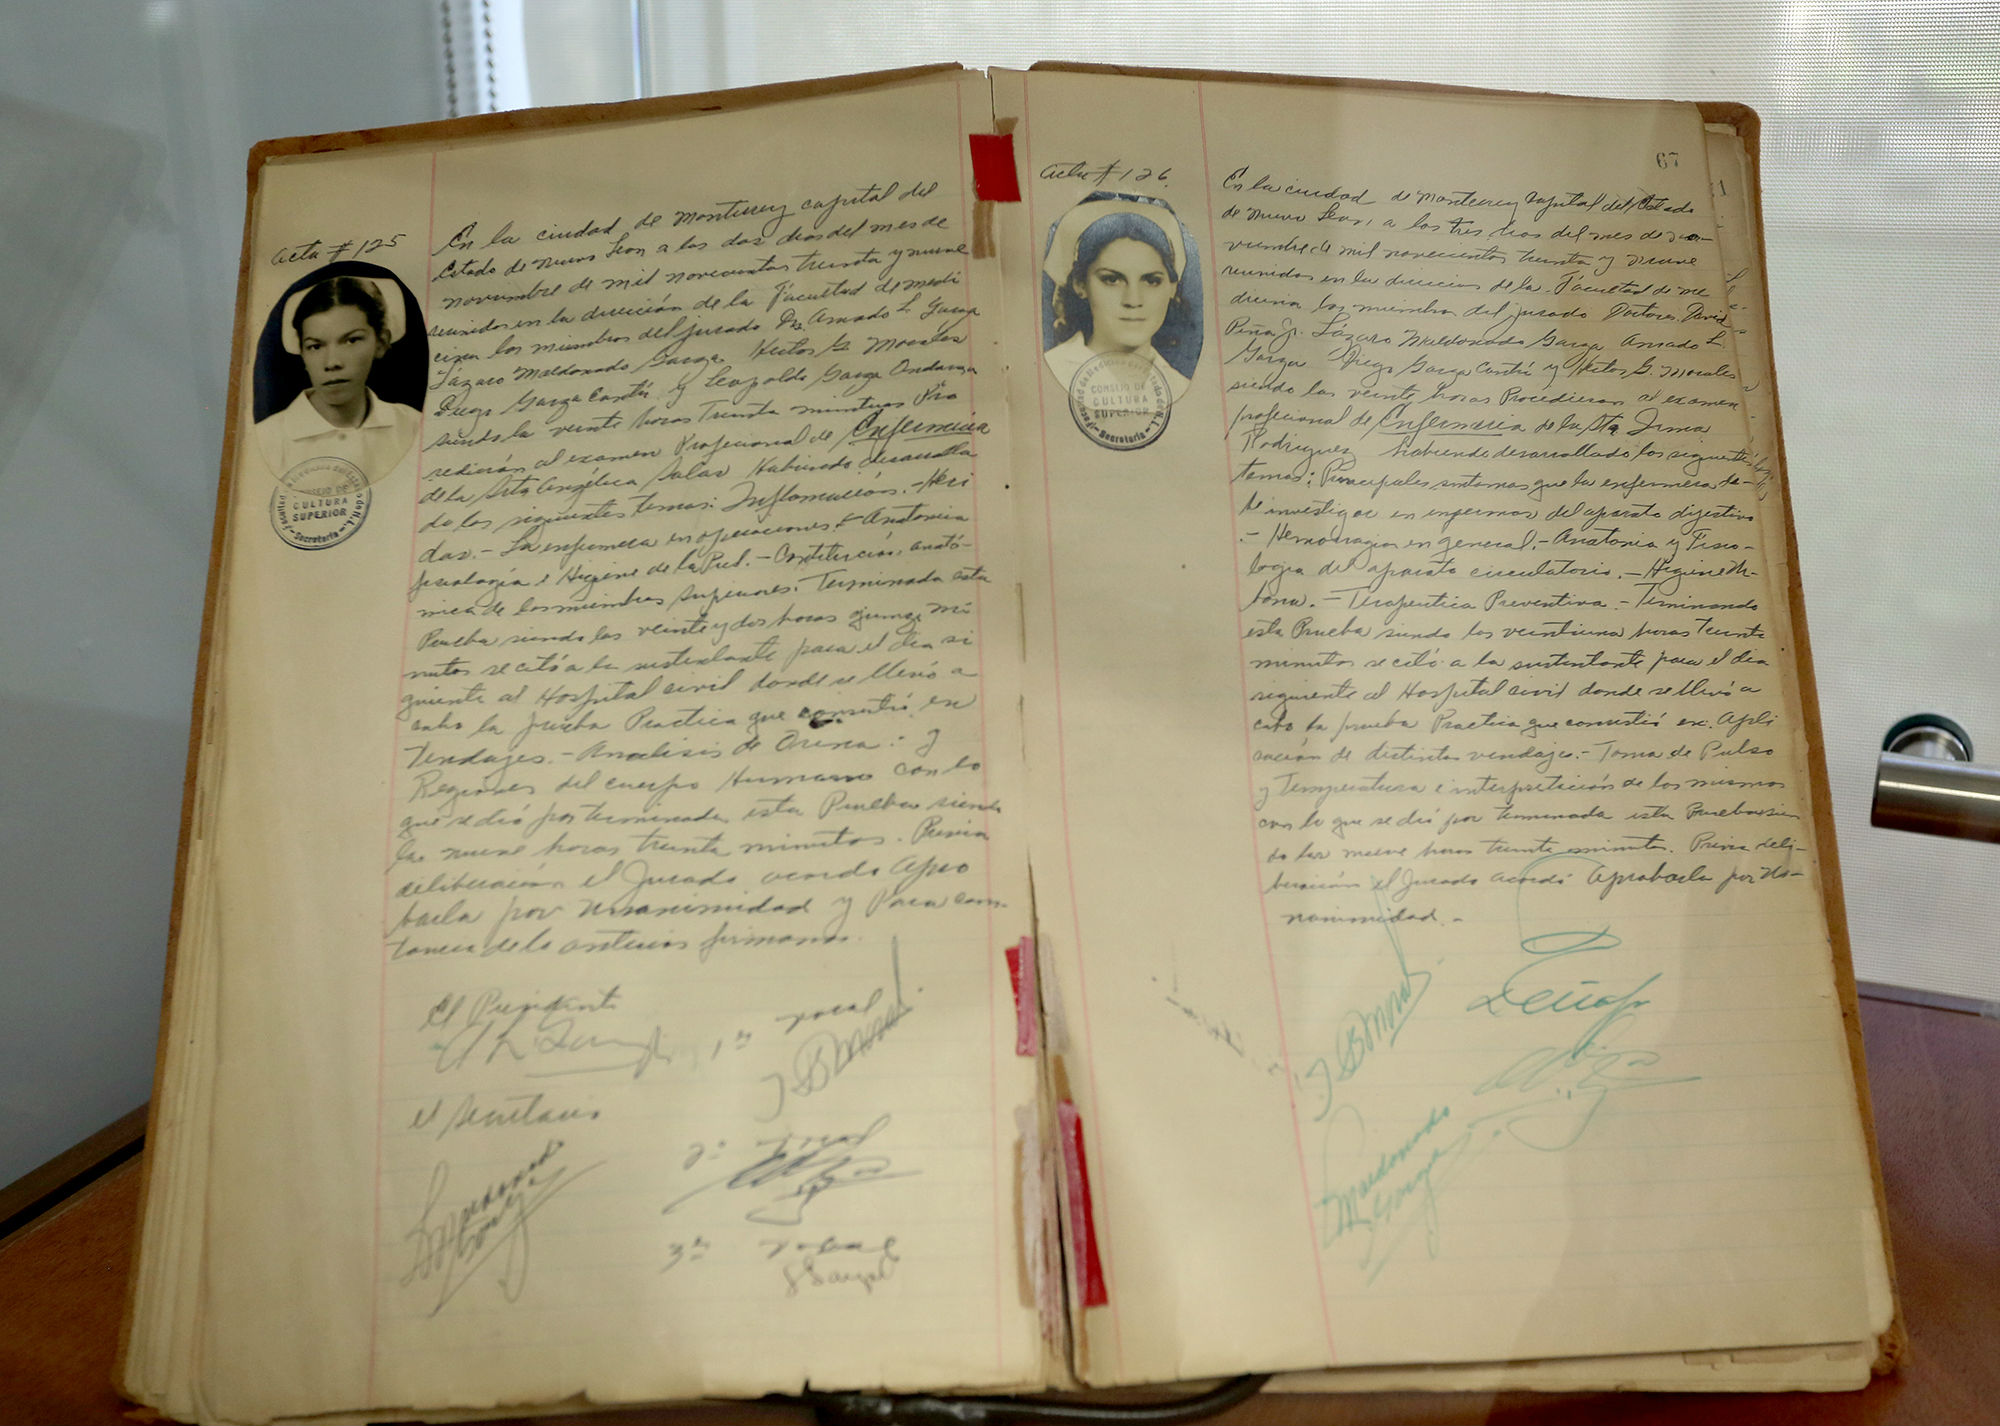 Acta # 125
En la ciudad de Monterrey capital del
Estado de Nuevo Leon a los dos dias del mes de
noviembre de mil novecientos treinta y nueve
reunidos en la dirección de la Facultad de medi
cina los miembros del jurado Drs. Amado L. Garza
Lázaro Maldonado Garza, Hector G. Morales
Diego Garza Cantú y Leopoldo Garza Ondarza
siendo la veinte horas treinta minutos Pro
cedieron al examen Profecional de Enfermería
de la Srta Angélica Salas Habiendo desarrolla
do los siguientes temas: Inflamación.- Heri
das.- La enfermera en operaciones.- Anatomia
fisiología e Higiene de la Piel.- Constitución anató-
mica de los miembros superiores. Terminada esta
Prueba siendo las veinte y dos horas quince mi
nutos se citó a la sustentante para el dia si
guiente al Hospital civil donde se llevó a
cabo la prueba Practica que consistió en
Vendajes.- Analisis de Orina.- y
Regiones del cuerpo Humano con lo
que se dió por terminada esta Prueba siendo
las nueve horas treinta minutos. Previa
deliberación el Jurado acordo Apro
barla por unanimidad y Para cons
tancia de lo anterior firmamos.
El Presidente
1er vocal
el Secretario
Maldonado
Garza
2o vocal
3er vocal
CONSEJO DE
CULTURA
SUPERIOR
Secretaria
67
Acta # 126
En la ciudad de Monterrey capital del Estado
de Nuevo Leon, a los tres dias del mes de no-
viembre de mil novecientos treinta y nueve
reunidos en la direccion de la Facultad de me
dicina los miembros del jurado Doctores David
Peña Jr. Lázaro Maldonado Garza Amado L.
Garza Diego Garza Cantú y Hector G. Morales
siendo las veinte horas Procedieron al examen
profecional de Enfermeria de la Sta Irma
Rodriguez habiendo desarrollado los siguientes
temas: Principales sintomas que la enfermera de-
be investigar en enfermos del aparato digestivo
.- Hemorragias en general.- Anatomia y Fisio-
logia del aparato circulatorio.- Higiene Ur-
bana.- Terapeutica Preventiva.- Terminando
esta Prueba siendo las veintiuna horas treinta
minutos se citó a la sustentante para el dia
siguiente al Hospital civil donde se llevó a
cabo la prueba Practica que consistió en: Apli
cación de distintos vendajes.- Toma de Pulso
y Temperatura e interpretición de los mismos
con lo que se dió por terminada esta Prueba sien
do las nueve horas treinta minutos. Previa deli-
beración el Jurado acordó Aprobarla por Una-
nimidad.-
Maldonado
Garza
CONSEJO DE
CULTURA
SUPERIOR
Secretaria